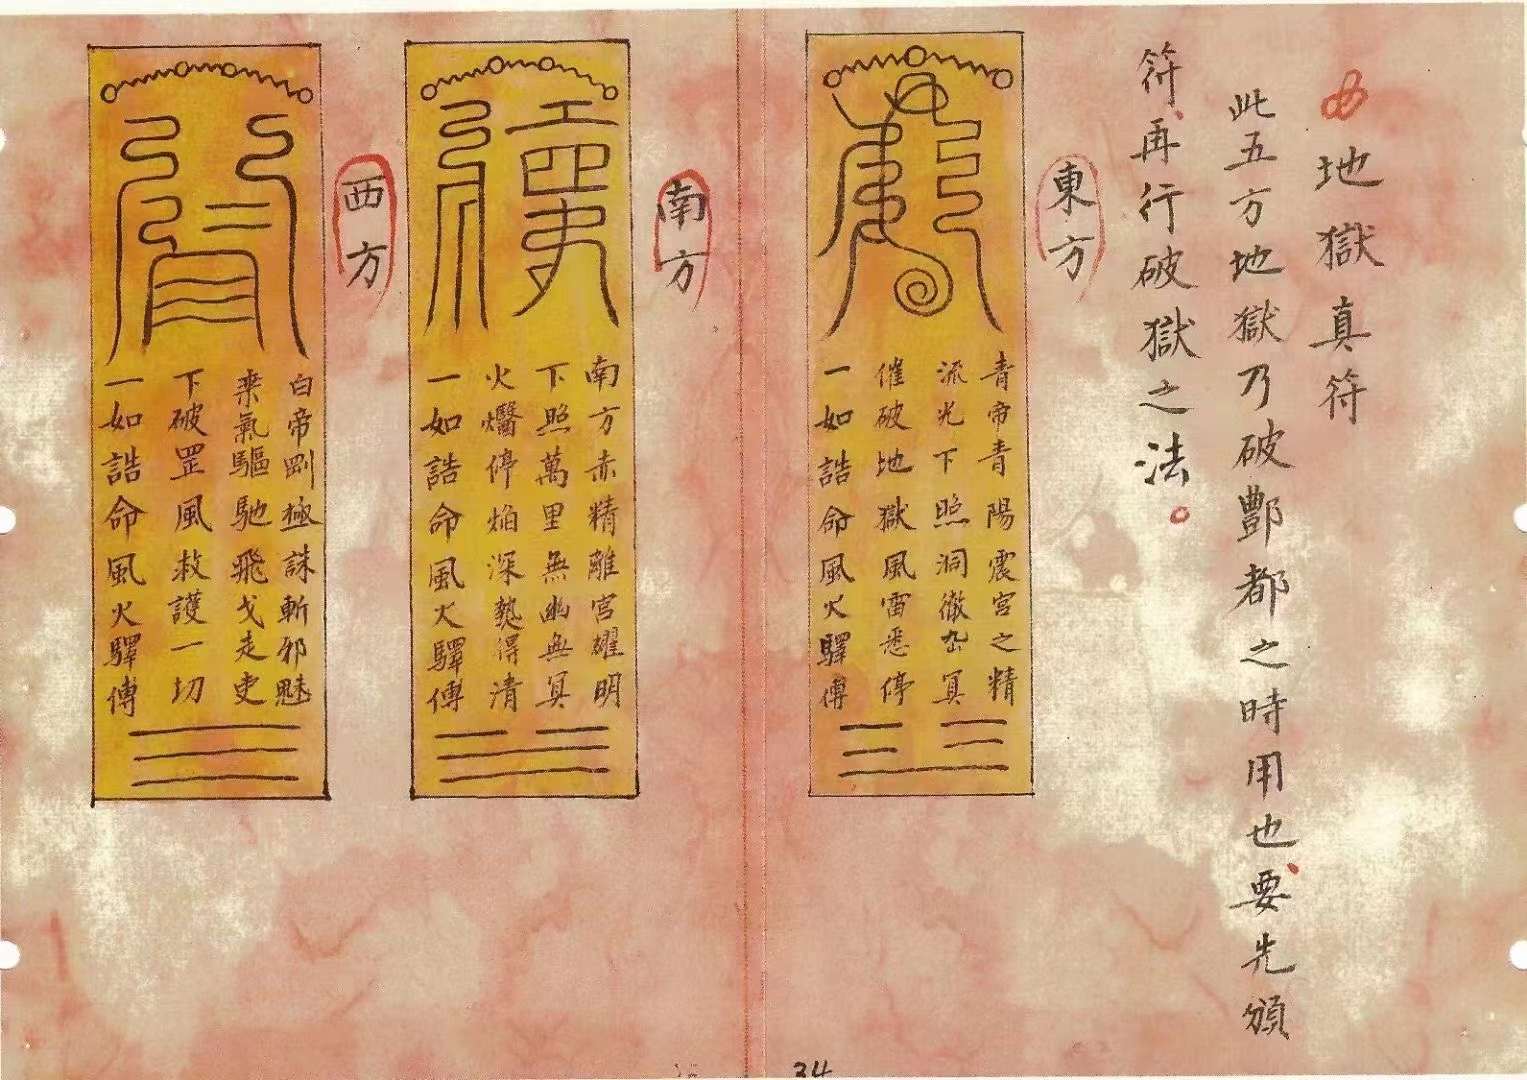 地獄真符
此五方地獄乃破酆都之時用也、要先頒
符、再行破獄之法。
東方
青帝青陽震宮之精
流光下照洞徹幽冥
催破地獄風雷悉停
一如誥命風火驛傳
南方
南方赤精離宮耀明
下照萬里無幽無冥
火翳停焰深熱得清
一如誥命風火驛傳
西方
白帝剛極誅斬邪魅
乘氣驅馳飛戈走吏
下破罡風救護一切
一如誥命風火驛傳
34